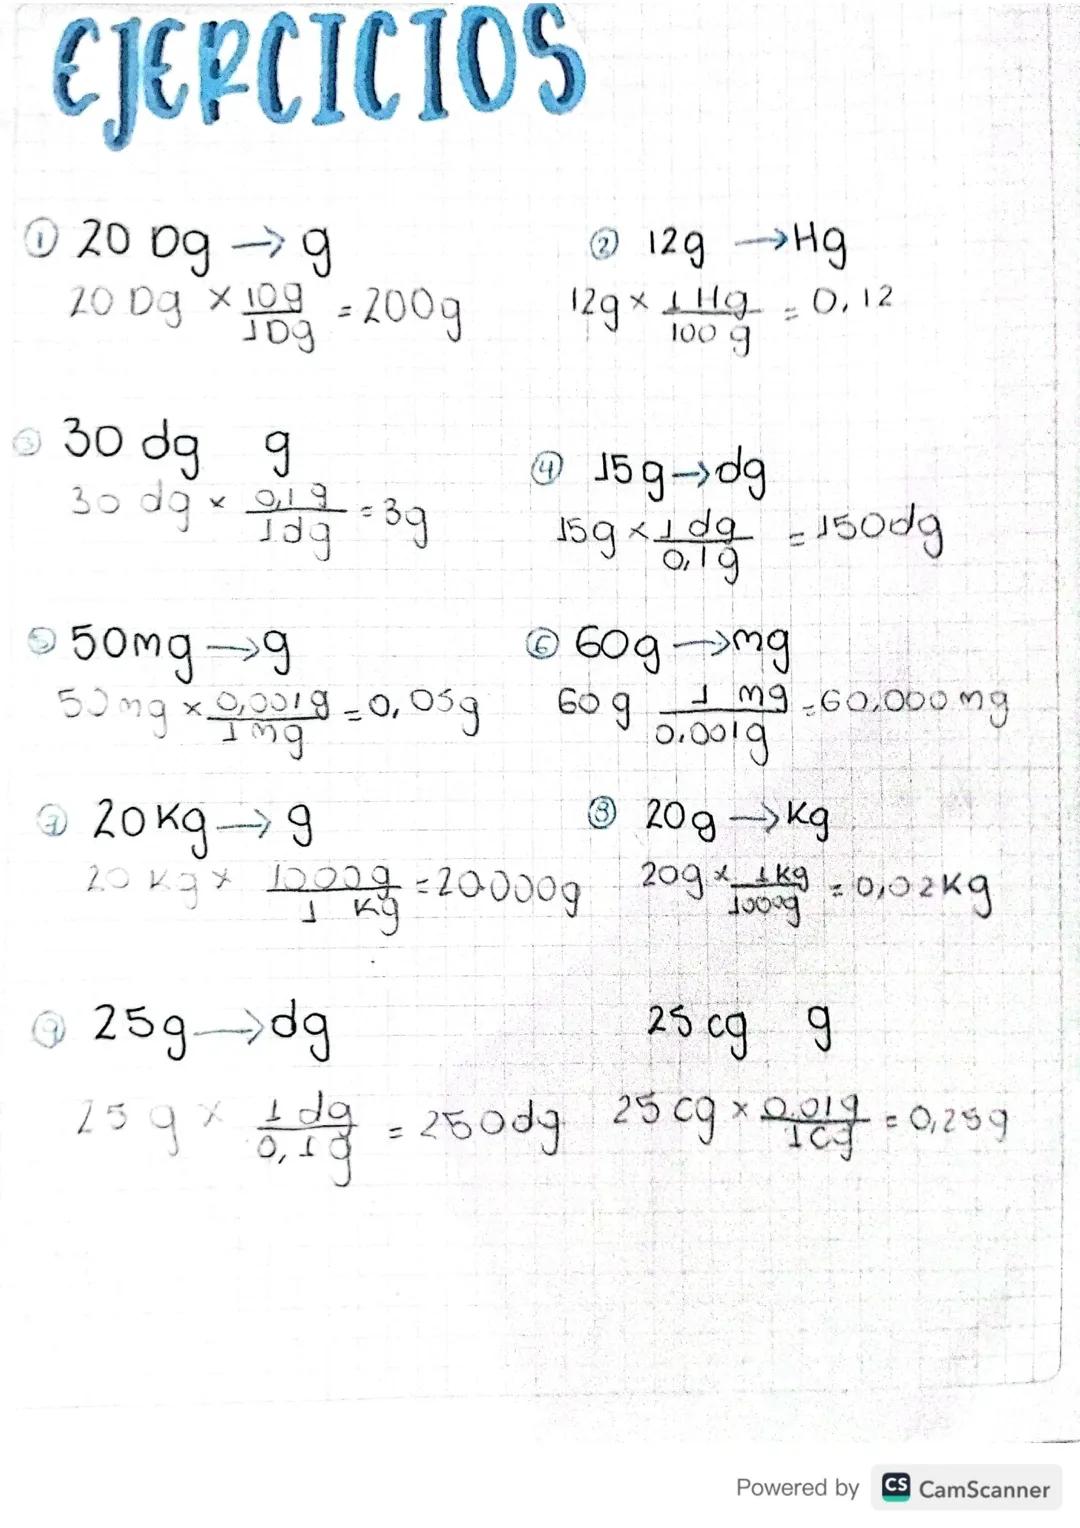 EJERCICIOS
① 20 Dg → g
20 Dg × 10g / 1Dg = 200g
② 12g → Hg
12g × 1 Hg / 100 g = 0,12
③ 30 dg g
30 dg × 0,1 g / 1dg = 3g
④ 15g → dg
15g × 1 dg / 0,1g = 150dg
⑤ 50mg → g
50mg × 0,001g / 1mg = 0,05g
⑥ 60g → mg
60 g 1 mg / 0.001g = 60.000 mg
⑦ 20 Kg → g
20 Kg × 1000g / 1 Kg = 20.000g
⑧ 20g → Kg
20g × 1Kg / 1000g = 0,02Kg
⑨ 25g → dg
25 g × 1 dg / 0,1g = 250dg
25 cg g
25 cg × 0.01g / 1Cg = 0,25g
Powered by CS CamScanner